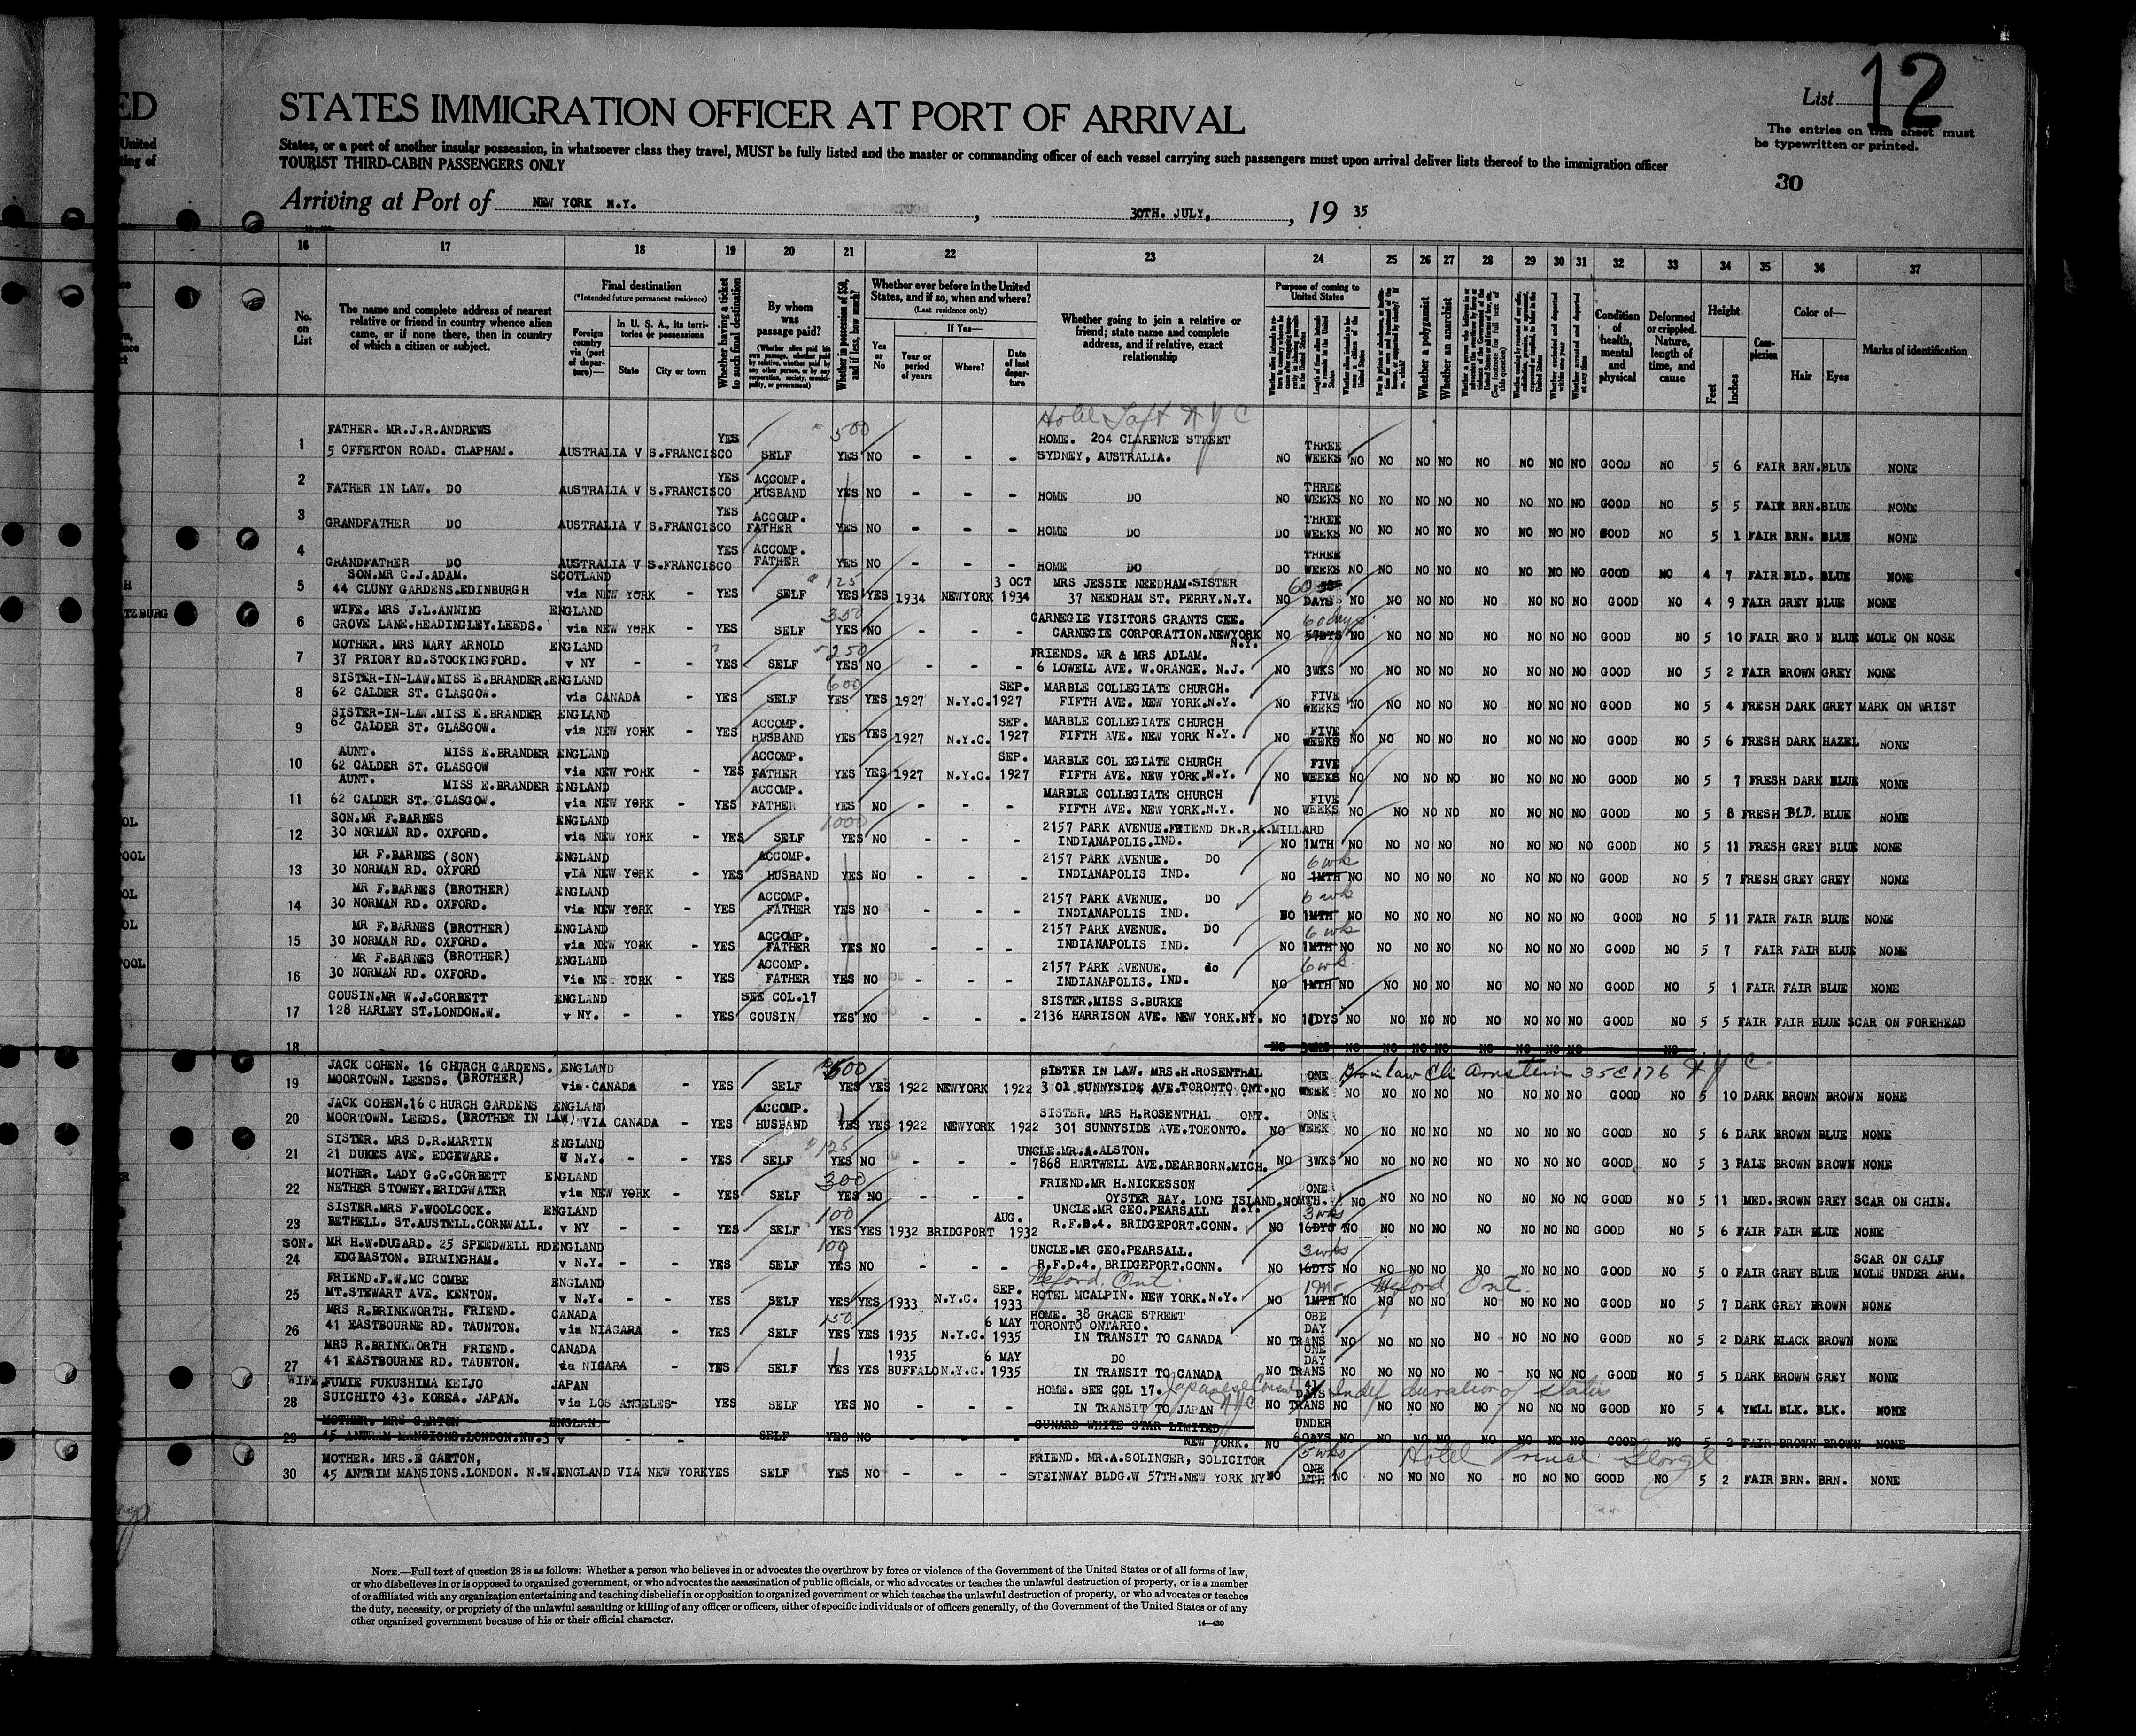 ED
STATES IMMIGRATION OFFICER AT PORT OF ARRIVAL
List 12
The entries on this sheet must
be typewritten or printed.
United
ting of
States, or a port of another insular possession, in whatsoever class they travel, MUST be fully listed and the master or commanding officer of each vessel carrying such passengers must upon arrival deliver lists thereof to the immigration officer
TOURIST THIRD-CABIN PASSENGERS ONLY
30
Arriving at Port of NEW YORK N.Y. , 30TH. JULY, , 19 35
16 17 18 19 20 21 22 23 24 25 26 27 28 29 30 31 32 33 34 35 36 37
No. on List
The name and complete address of nearest relative or friend in country whence alien came, or if none there, then in country of which a citizen or subject.
Final destination
(*Intended future permanent residence)
Foreign country via (port of departure)—
In U. S. A., its territories or possessions
State
City or town
Whether having a ticket to such final destination
By whom was passage paid?
(Whether alien paid his own passage, whether paid by relative, whether paid by any other person, or by any corporation, society, municipality, or government)
Whether in possession of $50, and if less, how much?
Whether ever before in the United States, and if so, when and where?
(Last residence only)
If Yes—
Yes or No
Year or period of years
Where?
Date of last departure
Whether going to join a relative or friend; state name and complete address, and if relative, exact relationship
Purpose of coming to United States
Whether a polygamist
Whether an anarchist
Condition of health, mental and physical
Deformed or crippled. Nature, length of time, and cause
Height
Feet
Inches
Complexion
Color of—
Hair
Eyes
Marks of identification
Hotel Taft N Y C
FATHER. MR.J.R.ANDREWS YES 500 HOME. 204 CLARENCE STREET THREE
1 5 OFFERTON ROAD. CLAPHAM. AUSTRALIA V S.FRANCISCO SELF YES NO - - - SYDNEY, AUSTRALIA. NO WEEKS NO NO NO NO NO NO NO NO GOOD NO 5 6 FAIR BRN. BLUE NONE
2 YES ACCOMP. THREE
FATHER IN LAW. DO AUSTRALIA V S.FRANCISCO HUSBAND YES NO - - - HOME DO NO WEEKS NO NO NO NO NO NO NO NO GOOD NO 5 5 FAIR BRN. BLUE NONE
3 YES ACCOMP. THREE
GRANDFATHER DO AUSTRALIA V S.FRANCISCO FATHER YES NO - - - HOME DO DO WEEKS NO NO NO NO NO NO NO NO GOOD NO 5 1 FAIR BRN. BLUE NONE
4 YES ACCOMP. THREE
GRANDFATHER DO AUSTRALIA V S.FRANCISCO FATHER YES NO - - - HOME DO DO WEEKS NO NO NO NO NO NO NO NO GOOD NO 4 7 FAIR BLD. BLUE NONE
SON.MR C.J.ADAM. SCOTLAND 125 3 OCT MRS JESSIE NEEDHAM-SISTER 60
5 44 CLUNY GARDENS.EDINBURGH via NEW YORK - YES SELF YES YES 1934 NEWYORK 1934 37 NEEDHAM ST. PERRY.N.Y. NO DAYS NO NO NO NO NO NO NO NO GOOD NO 4 9 FAIR GREY BLUE NONE
WIFE. MRS J.L.ANNING ENGLAND 350 CARNEGIE VISITORS GRANTS CEE. 60 days
6 GROVE LANE.HEADINGLEY.LEEDS. via NEW YORK - YES SELF YES NO - - - CARNEGIE CORPORATION.NEWYORK N.Y. NO 57DYS NO NO NO NO NO NO NO NO GOOD NO 5 10 FAIR BRO N BLUE MOLE ON NOSE
MOTHER. MRS MARY ARNOLD ENGLAND 250 FRIENDS. MR & MRS ADLAM.
7 37 PRIORY RD.STOCKINGFORD. v NY - - YES SELF YES NO - - - 6 LOWELL AVE. W.ORANGE. N.J. NO 3WKS NO NO NO NO NO NO NO NO GOOD NO 5 2 FAIR BROWN GREY NONE
SISTER-IN-LAW.MISS E.BRANDER.ENGLAND 600 SEP. MARBLE COLLEGIATE CHURCH. FIVE
8 62 CALDER ST. GLASGOW. via CANADA - YES SELF YES YES 1927 N.Y.C. 1927 FIFTH AVE. NEW YORK.N.Y. NO WEEKS NO NO NO NO NO NO NO NO GOOD NO 5 4 FRESH DARK GREY MARK ON WRIST
SISTER-IN-LAW.MISS E.BRANDER ENGLAND ACCOMP. SEP. MARBLE COLLEGIATE CHURCH FIVE
9 62 CALDER ST. GLASGOW. via NEW YORK - YES HUSBAND YES YES 1927 N.Y.C. 1927 FIFTH AVE. NEW YORK N.Y. NO WEEKS NO NO NO NO NO NO NO NO GOOD NO 5 6 FRESH DARK HAZEL NONE
AUNT. MISS E.BRANDER ENGLAND ACCOMP. SEP. MARBLE COL EGIATE CHURCH FIVE
10 62 CALDER ST. GLASGOW via NEW YORK - YES FATHER YES YES 1927 N.Y.C. 1927 FIFTH AVE. NEW YORK.N.Y. NO WEEKS NO NO NO NO NO NO NO NO GOOD NO 5 7 FRESH DARK BLUE NONE
AUNT. MISS E.BRANDER ENGLAND ACCOMP. MARBLE COLLEGIATE CHURCH FIVE
11 62 CALDER ST. GLASGOW. via NEW YORK - YES FATHER YES NO - - - FIFTH AVE. NEW YORK.N.Y. NO WEEKS NO NO NO NO NO NO NO NO GOOD NO 5 8 FRESH BLD. BLUE NONE
SON.MR F.BARNES ENGLAND 1000 2157 PARK AVENUE.FRIEND DR.R.A.MILLARD
12 30 NORMAN RD. OXFORD. via NEW YORK - YES SELF YES NO - - - INDIANAPOLIS.IND. NO 1MTH NO NO NO NO NO NO NO NO GOOD NO 5 11 FRESH GREY BLUE NONE
MR F.BARNES (SON) ENGLAND ACCOMP. 2157 PARK AVENUE. DO 6 wk
13 30 NORMAN RD. OXFORD vIA NEW YORK - YES HUSBAND YES NO - - - INDIANAPOLIS IND. NO 1MTH NO NO NO NO NO NO NO NO GOOD NO 5 7 FRESH GREY GREY NONE
MR F.BARNES (BROTHER) ENGLAND ACCOMP. 2157 PARK AVENUE. DO 6 wk
14 30 NORMAN RD. OXFORD. via NEW YORK - YES FATHER YES NO - - - INDIANAPOLIS IND. NO 1MTH NO NO NO NO NO NO NO NO GOOD NO 5 11 FAIR FAIR BLUE NONE
MR F.BARNES (BROTHER) ENGLAND ACCOMP. 2157 PARK AVENUE. DO 6 wk
15 30 NORMAN RD. OXFORD. via NEW YORK - YES FATHER YES NO - - - INDIANAPOLIS IND. NO 1MTH NO NO NO NO NO NO NO NO GOOD NO 5 7 FAIR FAIR BLUE NONE
MR F.BARNES (BROTHER) ENGLAND ACCOMP. 2157 PARK AVENUE. do 6 wk.
16 30 NORMAN RD. OXFORD. via NE YORK - YES FATHER YES NO - - - INDIANAPOLIS. IND. NO 1MTH NO NO NO NO NO NO NO NO GOOD NO 5 1 FAIR FAIR BLUE NONE
COUSIN.MR W.J.CORBETT ENGLAND SEE COL.17 SISTER.MISS S.BURKE
17 128 HARLEY ST.LONDON.W. v NY. - - YES COUSIN YES NO - - - 2136 HARRISON AVE. NEW YORK.NY. NO DYS NO NO NO NO NO NO NO NO GOOD NO 5 5 FAIR FAIR BLUE SCAR ON FOREHEAD
18 NO 3WKS NO NO NO NO NO NO NO NO NO
JACK COHEN. 16 CHURCH GARDENS. ENGLAND SISTER IN LAW. MRS.H.ROSENTHAL ONE N Y C
19 MOORTOWN. LEEDS. (BROTHER) via CANADA - YES SELF YES YES 1922 NEWYORK 1922 3 01 SUNNYSIDE AVE.TORONTO ONT. NO WEEK NO NO NO NO NO NO NO NO GOOD NO 5 10 DARK BROWN BROWN NONE
JACK COHEN.16 C HURCH GARDENS ENGLAND ACCOMP. SISTER. MRS H.ROSENTHAL ONT. ONE
20 MOORTOWN. LEEDS. (BROTHER IN LAW) VIA CANADA - YES HUSBAND YES YES 1922 NEWYORK 1922 301 SUNNYSIDE AVE.TORONTO. NO WEEK NO NO NO NO NO NO NO NO GOOD NO 5 6 DARK BROWN BLUE NONE
SISTER. MRS D.R.MARTIN ENGLAND 125 UNCLE.MR.A.ALSTON.
21 21 DUKES AVE. EDGEWARE. v N.Y. - - YES SELF YES NO - - - 7868 HARTWELL AVE.DEARBORN.MICH. NO 3WKS NO NO NO NO NO NO NO NO GOOD NO 5 3 PALE BROWN BROWN NONE
MOTHER. LADY G.C.CORBETT ENGLAND 300 FRIEND.MR H.NICKESSON ONE
22 NETHER STOWEY.BRIDGWATER via NEW YORK - YES SELF YES NO - - - OYSTER BAY. LONG ISLAND. N.Y. NO MTH. NO NO NO NO NO NO NO NO GOOD NO 5 11 MED. BROWN GREY SCAR ON CHIN.
SISTER.MRS F.WOOLCOCK. ENGLAND 100 AUG. UNCLE.MR GEO.PEARSALL 3 wks
23 BETHELL. ST.AUSTELL.CORNWALL. v NY - YES SELF YES YES 1932 BRIDGPORT 1932 R.F.D.4. BRIDGEPORT.CONN. NO 16DYS NO NO NO NO NO NO NO NO GOOD NO 5 6 FAIR FAIR BLUE NONE
SON. MR H.W.DUGARD. 25 SPEEDWELL RD ENGLAND 100 UNCLE.MR GEO.PEARSALL. 3 wks SCAR ON CALF
24 EDGBASTON. BIRMINGHAM. v N.Y. - - YES SELF YES NO - - - R.F.D.4. BRIDGEPORT.CONN. NO 16DYS NO NO NO NO NO NO NO NO GOOD NO 5 0 FAIR GREY BLUE MOLE UNDER ARM.
FRIEND.F.W.MC COMBE ENGLAND SEP. Meford, Ont. 1 mo Meford, Ont.
25 MT.STEWART AVE. KENTON. v N.Y. - - YES SELF YES YES 1933 N.Y.C. 1933 HOTEL MCALPIN. NEW YORK.N.Y. NO 1MTH NO NO NO NO NO NO NO NO GOOD NO 5 7 DARK GREY BROWN NONE
MRS R.BRINKWORTH. FRIEND. CANADA 150 6 MAY HOME. 38 GRACE STREET TORONTO ONTARIO. OBE DAY
26 41 EASTBOURNE RD. TAUNTON. via NIAGARA - YES SELF YES YES 1935 N.Y.C. 1935 IN TRANSIT TO CANADA NO TRANS NO NO NO NO NO NO NO NO GOOD NO 5 2 DARK BLACK BROWN NONE
MRS R.BRINKWORTH FRIEND. CANADA 1935 6 MAY DO ONE DAY
27 41 EASTBOURNE RD. TAUNTON. via NIGARA - YES SELF YES YES BUFFALO N.Y.C. 1935 IN TRANSIT TO CANADA NO TRANS NO NO NO NO NO NO NO NO GOOD NO 5 5 DARK BROWN GREY NONE
WIFE. FUMIE FUKUSHIMA KEIJO JAPAN HOME. SEE COL 17. Japanese Consul NYC DYS Indef duration of status
28 SUICHITO 43. KOREA. JAPAN. via LOS ANGELES- YES SELF YES NO IN TRANSIT TO JAPAN NO TRANS NO NO NO NO NO NO NO NO GOOD NO 5 4 YELL BLK. BLK. NONE
MOTHER. MRS GARTON ENGLAND CUNARD WHITE STAR LIMITED UNDER
29 45 ANTRAM MANSIONS.LONDON.NW.3 v - - SELF YES NO - - - NEW YORK. NO 60DAYS NO NO NO NO NO NO NO NO GOOD NO 5 2 FAIR BROWN BROWN NONE
MOTHER. MRS.E GARTON, FRIEND. MR.A.SOLINGER, SOLICITOR 5 wks Hotel Prince George
30 45 ANTRIM MANSIONS.LONDON. N.W. ENGLAND VIA NEW YORK YES SELF YES NO - - - STEINWAY BLDG.W 57TH.NEW YORK NY NO ONE MTH NO NO NO NO NO NO NO NO GOOD NO 5 2 FAIR BRN. BRN. NONE
NOTE.—Full text of question 28 is as follows: Whether a person who believes in or advocates the overthrow by force or violence of the Government of the United States or of all forms of law,
or who disbelieves in or is opposed to organized government, or who advocates the assassination of public officials, or who advocates or teaches the unlawful destruction of property, or is a member
of or affiliated with any organization entertaining and teaching disbelief in or opposition to organized government or which teaches the unlawful destruction of property, or who advocates or teaches
the duty, necessity, or propriety of the unlawful assaulting or killing of any officer or officers, either of specific individuals or of officers generally, of the Government of the United States or of any
other organized government because of his or their official character.
14—430